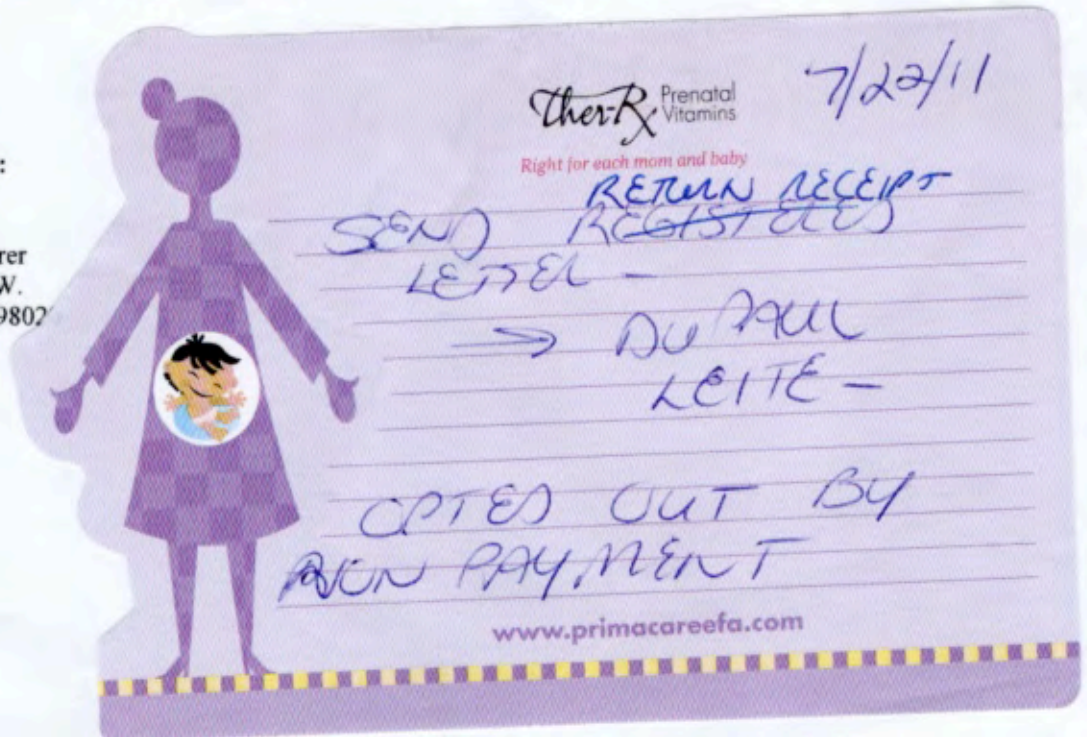 :
rer
W.
9802
Ther-Rx Prenatal Vitamins
7/22/11
Right for each mom and baby
RETURN RECEIPT
SEND REGISTERED
LETTER -
→ PAUL
LEITE -
OPTED OUT BY
NON PAYMENT
www.primacareefa.com